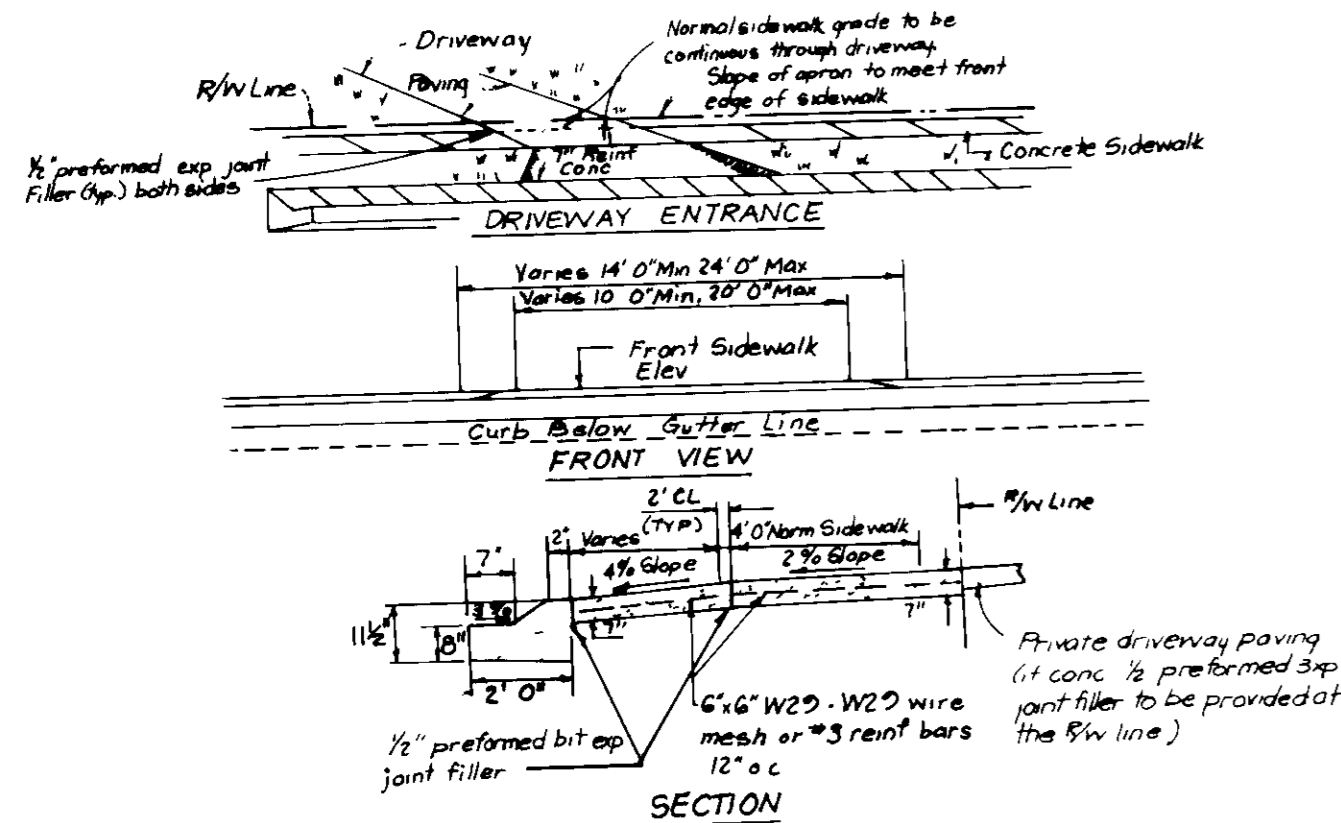 - Driveway
Paving
R/W Line
Normal sidewalk grade to be
continuous through driveway.
Slope of apron to meet front
edge of sidewalk
1/2" preformed exp joint
Filler (typ.) both sides
7" Reinf
Conc
Concrete Sidewalk
DRIVEWAY ENTRANCE
Varies 14' 0" Min 24' 0" Max
Varies 10 0" Min, 20' 0" Max
Front Sidewalk
Elev
Curb Below Gutter Line
FRONT VIEW
2' CL
(TYP)
R/W Line
2"
Varies
4' 0" Norm Sidewalk
7"
4% Slope
2% Slope
11 1/2"
8"
7"
7"
2' 0"
Private driveway paving
(if conc 1/2 preformed exp
joint filler to be provided at
the R/W line)
6"x6" W29 - W29 wire
mesh or #3 reinf bars
12" o c
1/2" preformed bit exp
joint filler
SECTION